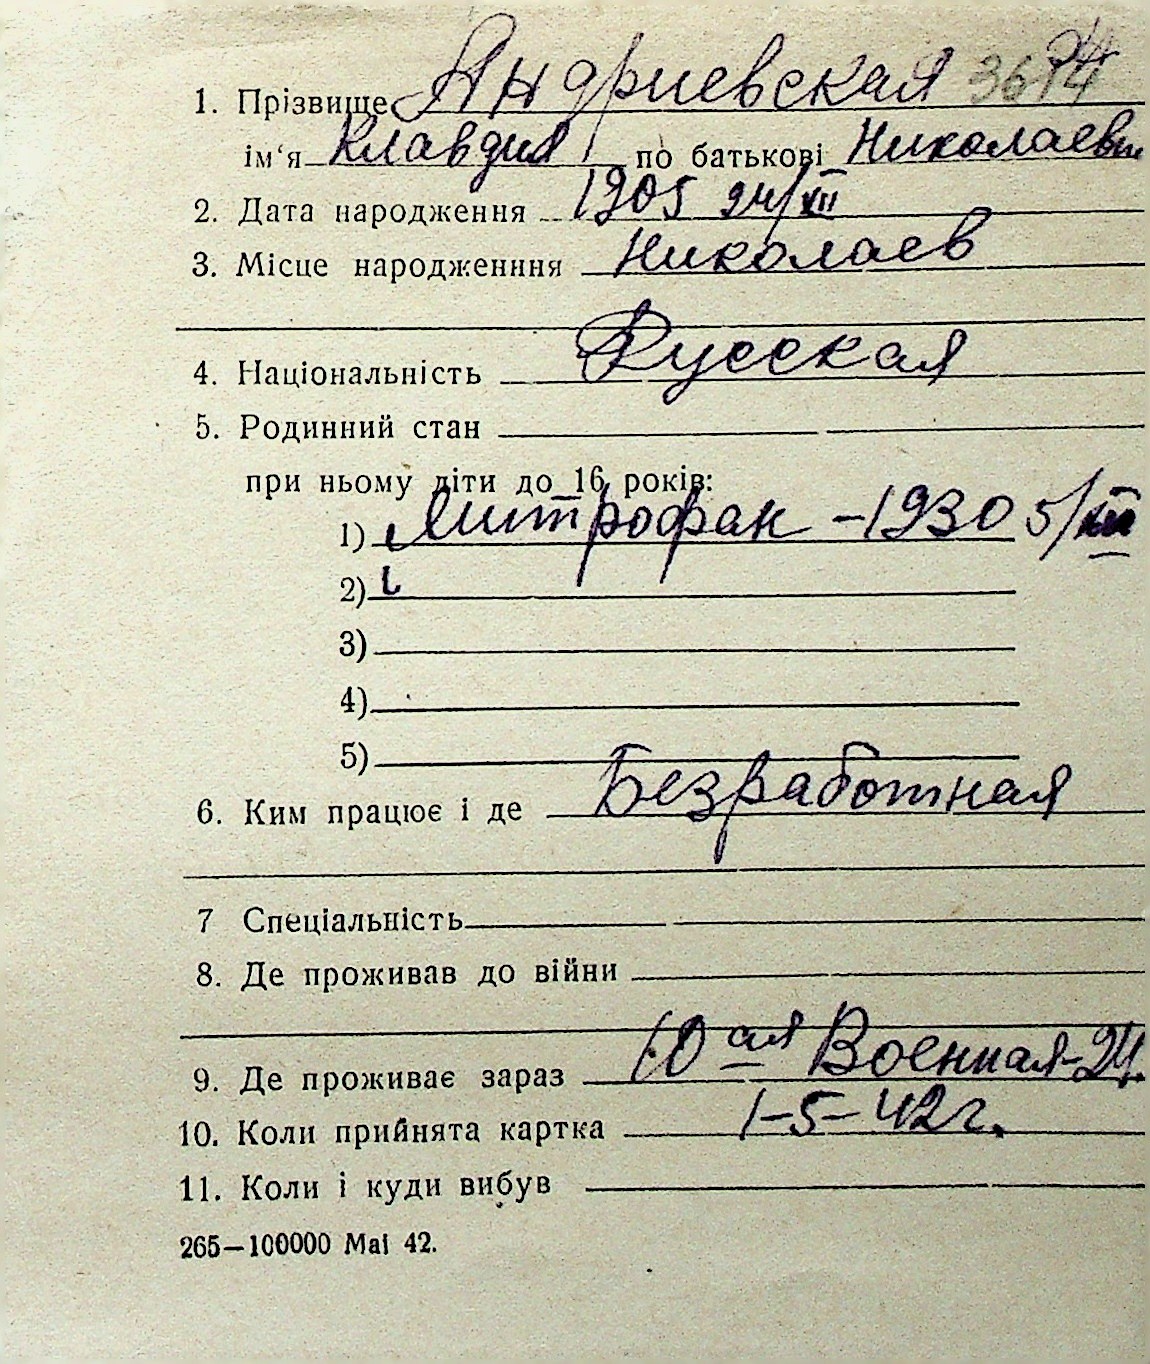 1. Прізвище Андриевская
ім'я Клавдия по батькові Николаевн
2. Дата народження 1905 24/XII
3. Місце народженння Николаев
4. Національність Русская
5. Родинний стан
при ньому діти до 16 років:
1) Митрофан - 1930 5/XII
2)
3)
4)
5)
6. Ким працює і де Безработная
7 Спеціальність
8. Де проживав до війни
9. Де проживає зараз 10 ая Военная-24
10. Коли прийнята картка 1-5-42 г.
11. Коли і куди вибув
265—100000 Mai 42.